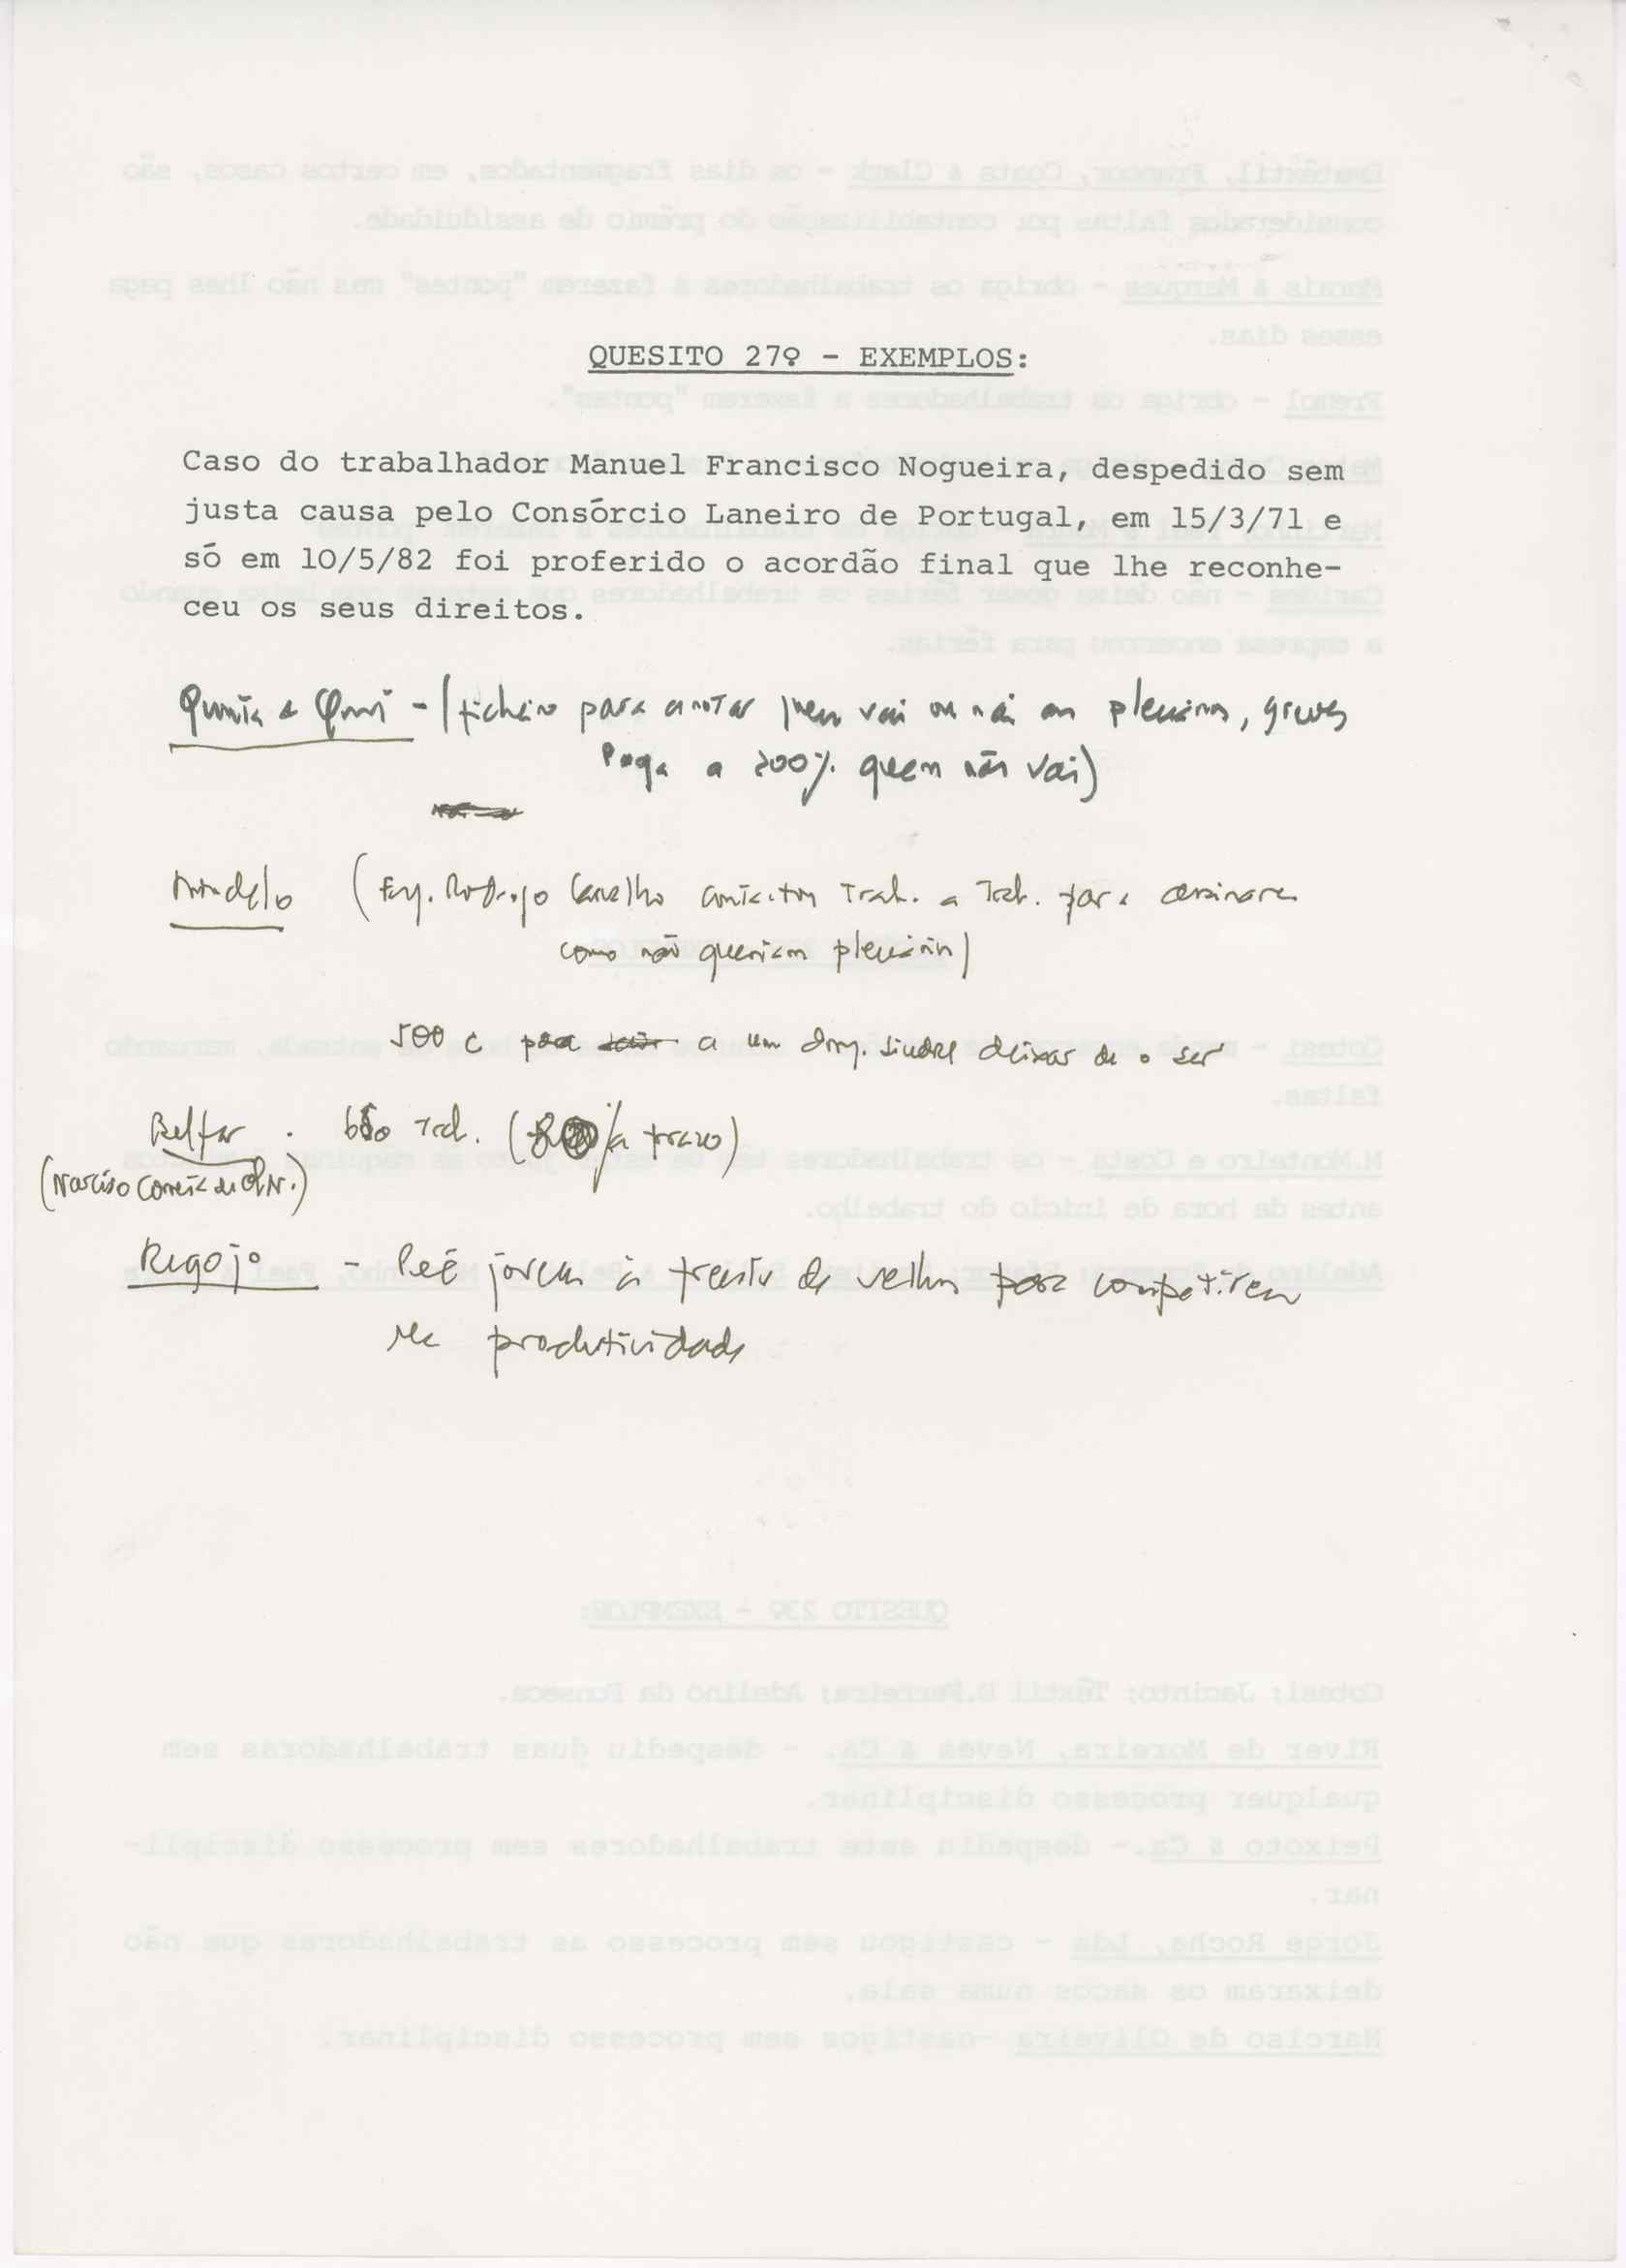 QUESITO 27º - EXEMPLOS:
Caso do trabalhador Manuel Francisco Nogueira, despedido sem
justa causa pelo Consórcio Laneiro de Portugal, em 15/3/71 e
só em 10/5/82 foi proferido o acordão final que lhe reconhe-
ceu os seus direitos.
(ficheiro para anotar quem vai ou não aos plenários, greves
Paga a 200% quem não vai)
Mindelo (Eng. Rodrigo Carvalho Trab. a Trab. para assinarem
como não queriam plenário)
500 c a um deleg. deixar de o ser
Belfar . Trab. ( /a prazo)
(Narciso Correia de)
Regojo - jovens à frente de velhos para competirem
na produtividade